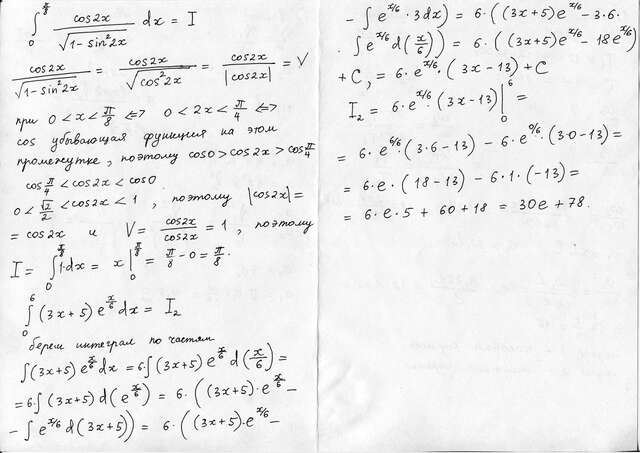 ∫₀^{π/8} cos2x / √(1-sin²2x) dx = I
cos2x / √(1-sin²2x) = cos2x / √(cos²2x) = cos2x / |cos2x| = V
при 0 < x < π/8 <=> 0 < 2x < π/4 <=>
cos убывающая функция на этом
промежутке, поэтому cos0 > cos2x > cos π/4
cos π/4 < cos2x < cos0
0 < √2/2 < cos2x < 1, поэтому |cos2x| =
= cos2x и V = cos2x / cos2x = 1, поэтому
I = ∫₀^{π/8} 1·dx = x |₀^{π/8} = π/8 - 0 = π/8.
∫₀^6 (3x+5) e^{x/6} dx = I₂
берем интеграл по частям
∫(3x+5) e^{x/6} dx = 6·∫(3x+5) e^{x/6} d(x/6) =
= 6·∫(3x+5) d(e^{x/6}) = 6·((3x+5)·e^{x/6} -
- ∫e^{x/6} d(3x+5)) = 6·((3x+5)·e^{x/6} -
- ∫e^{x/6}·3dx) = 6·((3x+5)e^{x/6} - 3·6·
·∫e^{x/6} d(x/6)) = 6·((3x+5)e^{x/6} - 18e^{x/6})
+ C, = 6·e^{x/6}·(3x-13) + C
I₂ = 6·e^{x/6}·(3x-13) |₀^6 =
= 6·e^{6/6}·(3·6-13) - 6·e^{0/6}·(3·0-13) =
= 6·e·(18-13) - 6·1·(-13) =
= 6·e·5 + 60 + 18 = 30e + 78.